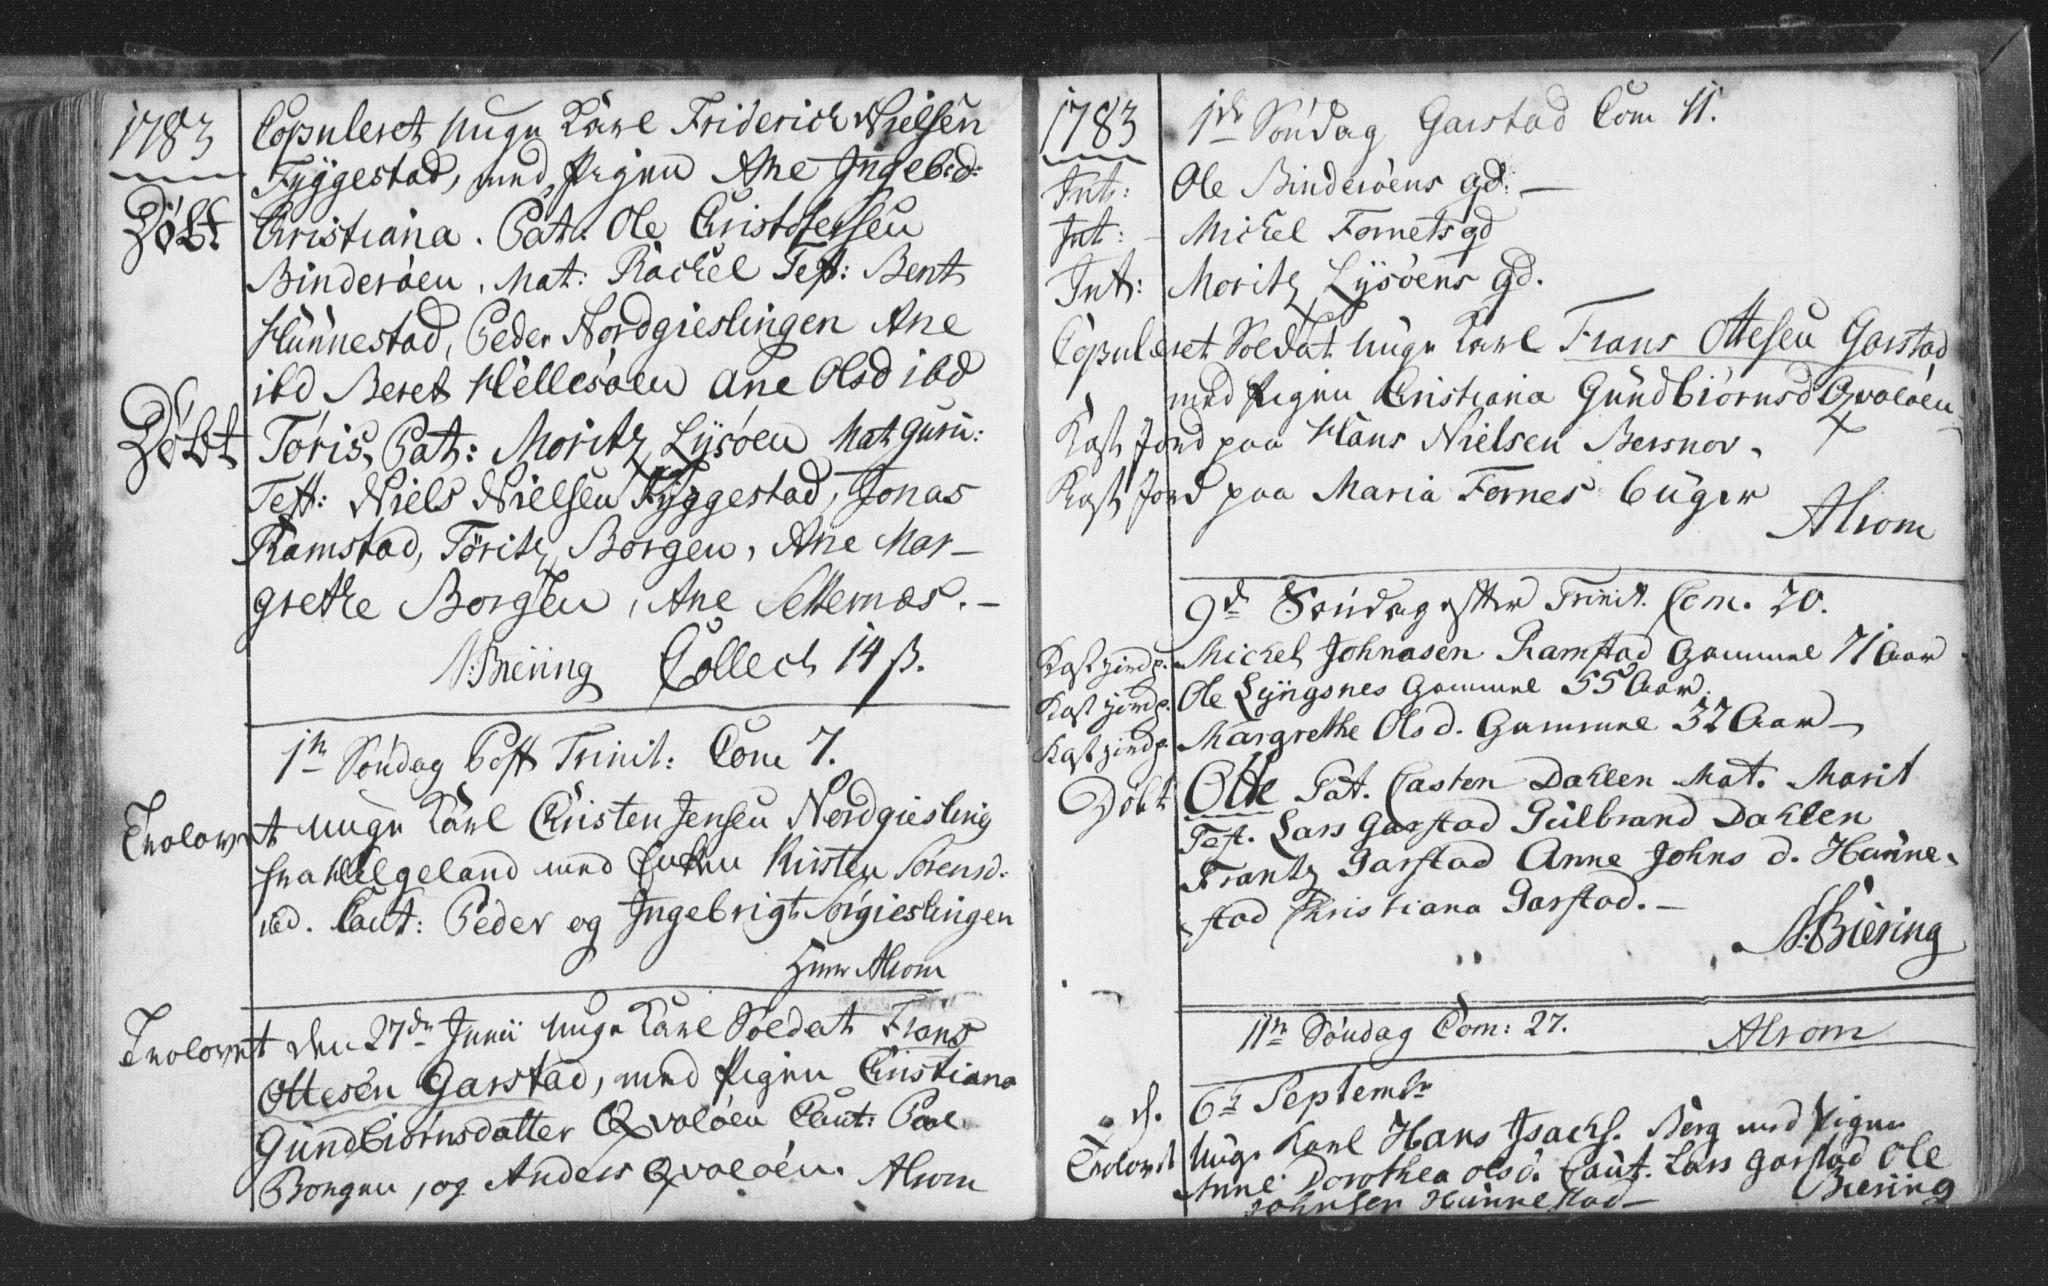 1783 Copuleret unge Karl Friderich Nielsen
Fyggestad, med Pigen Ane Ingeb:d:
Døbt Christiana. Pat: Ole Christofersen
Binderøen, Mat: Rachel Test: Bent
Hünnestad, Peder Nordgieslingen Ane
ibd Beret Hellesøen Ane Olsd ibd
Døbt Töris, Pat: Moritz Lysøen Mat guru:
Test: Niels Nielsen Fyggestad, Jonas
Ramstad, Töritz Borgen, Ane Mar-
grethe Borgen, Ane Setternæs. -
N: Biering Collech 14 ß.
1n Søndag Post Trinit: Com 7.
Trolovet unge Karl Christen Jensen Nordgiesling
fra Helgeland med Enken Kirsten Sørensd.
ibd. Caut: Peder og Ingebrigt Sørgieslingen
Herr Alrom
Trolovet den 27de Junii unge Karl Soldat Frans
Ottesen Garstad, med Pigen Christiana
Gundbiørnsdatter Qvaløen Caut: Poul
Borgen, og Anders Qvaløen. Alrom
1783 1de Søndag Garstad Com 11.
Int: Ole Binderøens gd: -
Int: - Michel Fornets gd
Int: Moritz Lysøens gd.
Copuleret Soldat unge Karl Frans Ottesen Garstad
med Pigen Christiana Gündbiørnsd Qvaløen
Kast Jord paa Hans Nielsen Bersnov.
Kast Jord paa Maria Fornes 6 üger
Alrom
9de Søndag efter Trinit. Com. 20.
Kast jord p. Michel Johnasen Ramstad Gammel 71 Aar
Kast jord p. Ole Lyngsnes Gammel 55 Aar.
Kast jord p. Margrethe Olsd. Gammel 32 Aar -
Døbt Otte Pat. Casten Dahlen Mat. Marit
Test. Lars Garstad Gulbrand Dahlen
Frantz Garstad Anne Johnsd. Hünne-
stad Christiana Garstad. -
N: Biering
11te Søndag Com: 27. Alrom
d. 6te Septembr
Trolovet unge Karl Hans Isachs. Berg med Pigen
Anne Dorothea olsd. Caut. Lars Garstad Ole
Johnsen Hünnestad - Biering